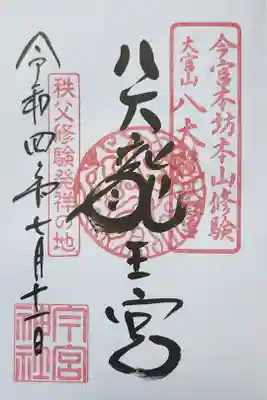 今宮本坊本山修験
大宮山
八大
八大龍王宮
秩父修験発祥の地
令和四年七月十一日
今宮
神社